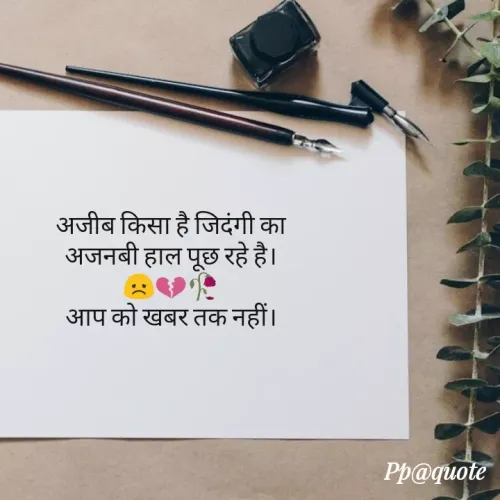 अजीब किसा है जिदंगी का
अजनबी हाल पूछ रहे है।
☹️💔🥀
आप को खबर तक नहीं।
Pp@quote